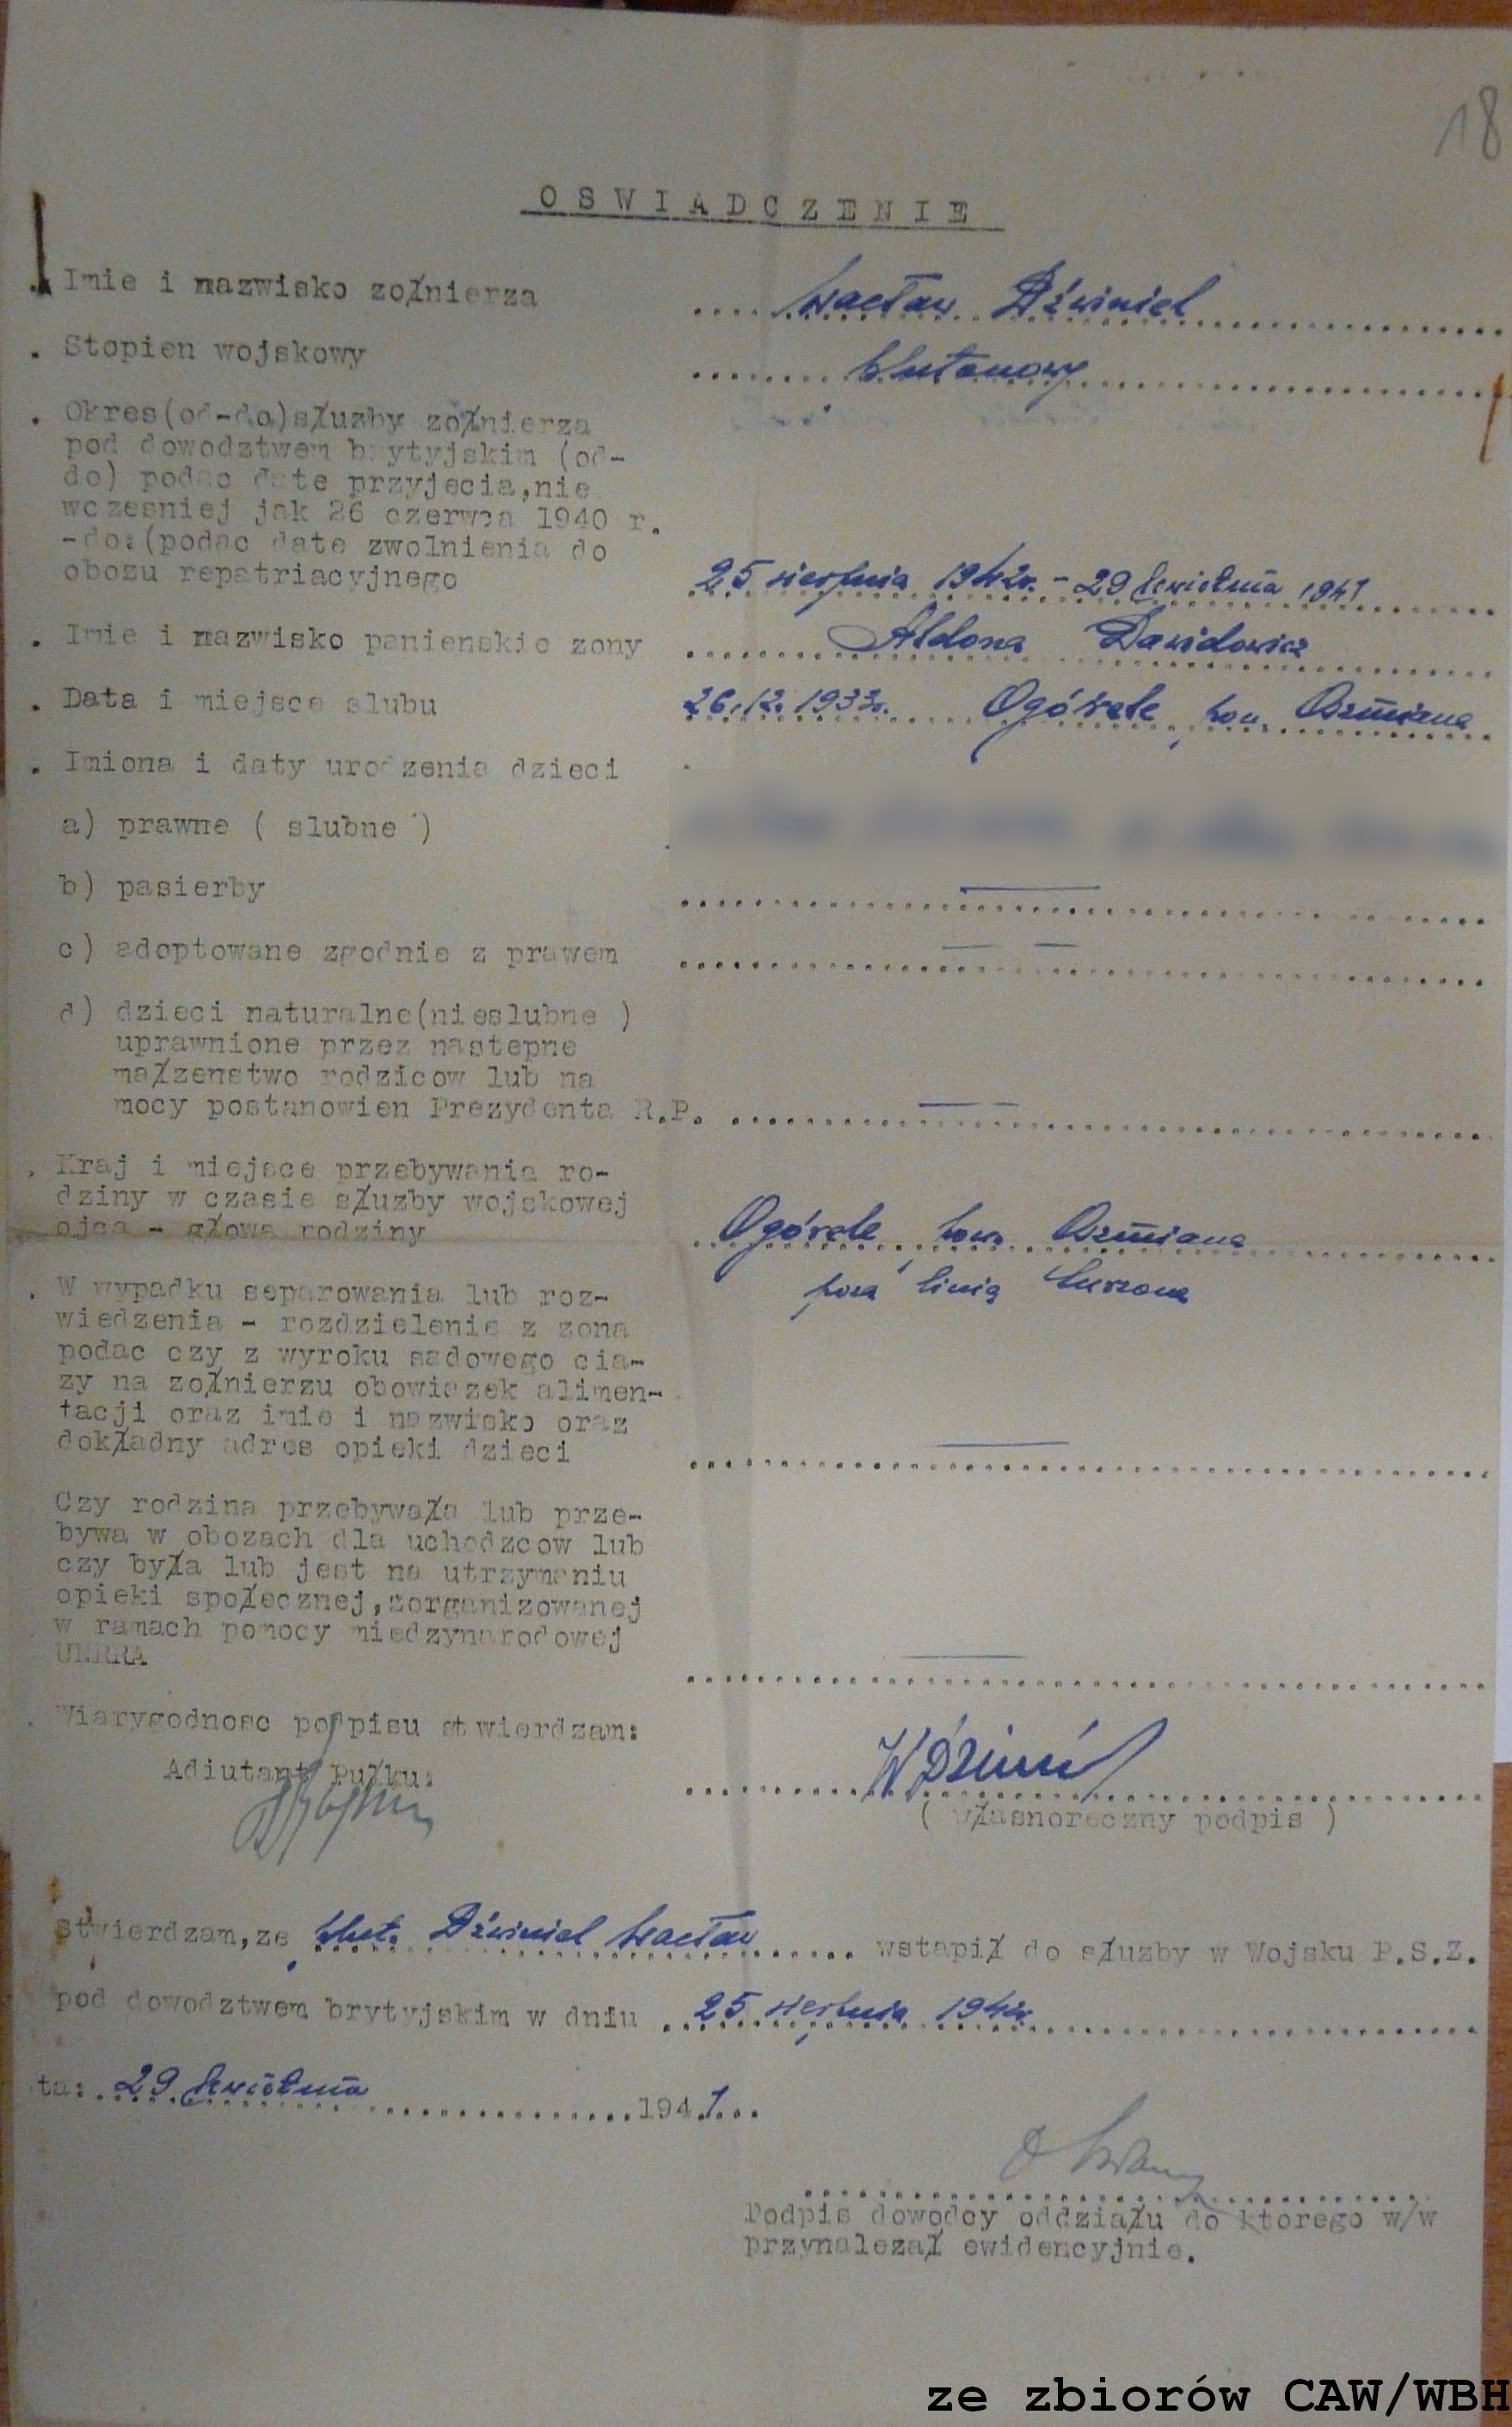 18
OSWIADCZENIE
. Imie i nazwisko zołnierza .... Wacław Dźwiniel
. Stopien wojskowy ....... plutonowy
. Okres(od-do)słuzby zołnierza
pod dowodztwem brytyjskim (od-
do) podac date przyjecia,nie
wczesniej jak 26 czerwca 1940 r.
-do:(podac date zwolnienia do
obozu repatriacyjnego 25 sierpnia 1942r. - 29 kwietnia 1947
. Imie i nazwisko panienskie zony Aldona Dawidowicz
. Data i miejsce slubu 26.12.1933r. pow. Oszmiana
. Imiona i daty urodzenia dzieci
a) prawne ( slubne )
b) pasierby
c) adoptowane zgodnie z prawem
d) dzieci naturalne(nieslubne )
uprawnione przez nastepne
małzenstwo rodzicow lub na
mocy postanowien Prezydenta R.P.
. Kraj i miejsce przebywania ro-
dziny w czasie słuzby wojskowej
ojca - głowa rodziny pow. Oszmiana
poza linią Curzona
. W wypadku separowania lub roz-
wiedzenia - rozdzielenie z zona
podac czy z wyroku sadowego cia-
zy na zołnierzu obowiazek alimen-
tacji oraz imie i nazwisko oraz
dokładny adres opieki dzieci
Czy rodzina przebywała lub prze-
bywa w obozach dla uchodzcow lub
czy była lub jest na utrzymaniu
opieki społecznej,zorganizowanej
w ramach pomocy miedzynarodowej
UNRRA
Wiarygodnosc podpisu stwierdzam:
Adiutant Pułku:
( własnoreczny podpis )
stwierdzam,ze plut. Dźwiniel Wacław ...... wstapił do słuzby w Wojsku P.S.Z.
pod dowodztwem brytyjskim w dniu 25 sierpnia 1942r
ta: 29 kwietnia 1947...
Podpis dowodcy oddziału do ktorego w/w
przynalezał ewidencyjnie.
ze zbiorów CAW/WBH